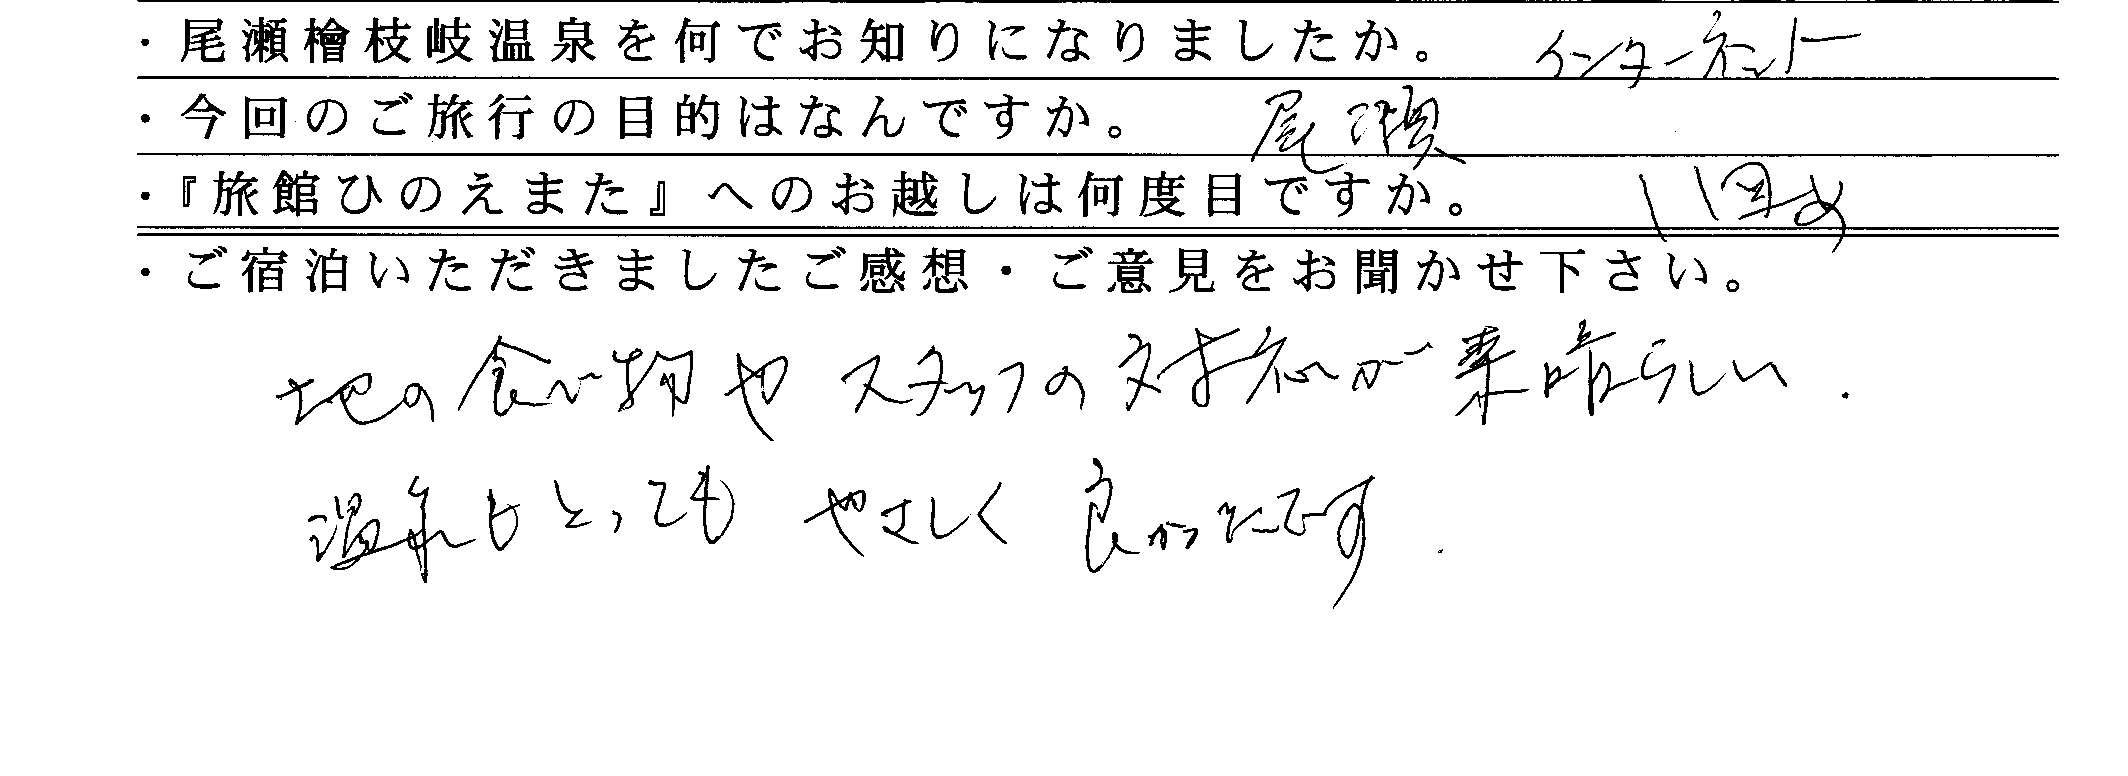 ・尾瀬檜枝岐温泉を何でお知りになりましたか。 インターネット
・今回のご旅行の目的はなんですか。 尾瀬
・『旅館ひのえまた』へのお越しは何度目ですか。 11回め
・ご宿泊いただきましたご感想・ご意見をお聞かせ下さい。
地の食べ物や スタッフの対応が素晴らしい.
温泉もとっても やさしく 良かったです.